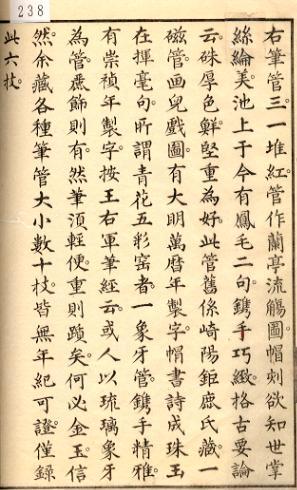 238
右筆管三。一堆紅。管作蘭亭流觴圖。帽刻欲知世掌
絲綸美。池上于今有鳳毛二句。鐫手巧緻。格古要論
云。硃厚色鮮。堅重為好。此管舊係崎陽鉅鹿氏藏。一
磁管。画兒戲圖。有大明萬曆年製字。帽書詩成珠玉
在揮毫句。所謂青花五彩窑者。一象牙管。鐫手精雅。
有崇禎年製字。按王右軍筆經云。或人以琉璃象牙
為管。麗飾則有。然筆須輕便。重則躓矣。何必金玉。信
然。余藏各種筆管大小數十枝。皆無年紀可證。僅錄
此六枝。